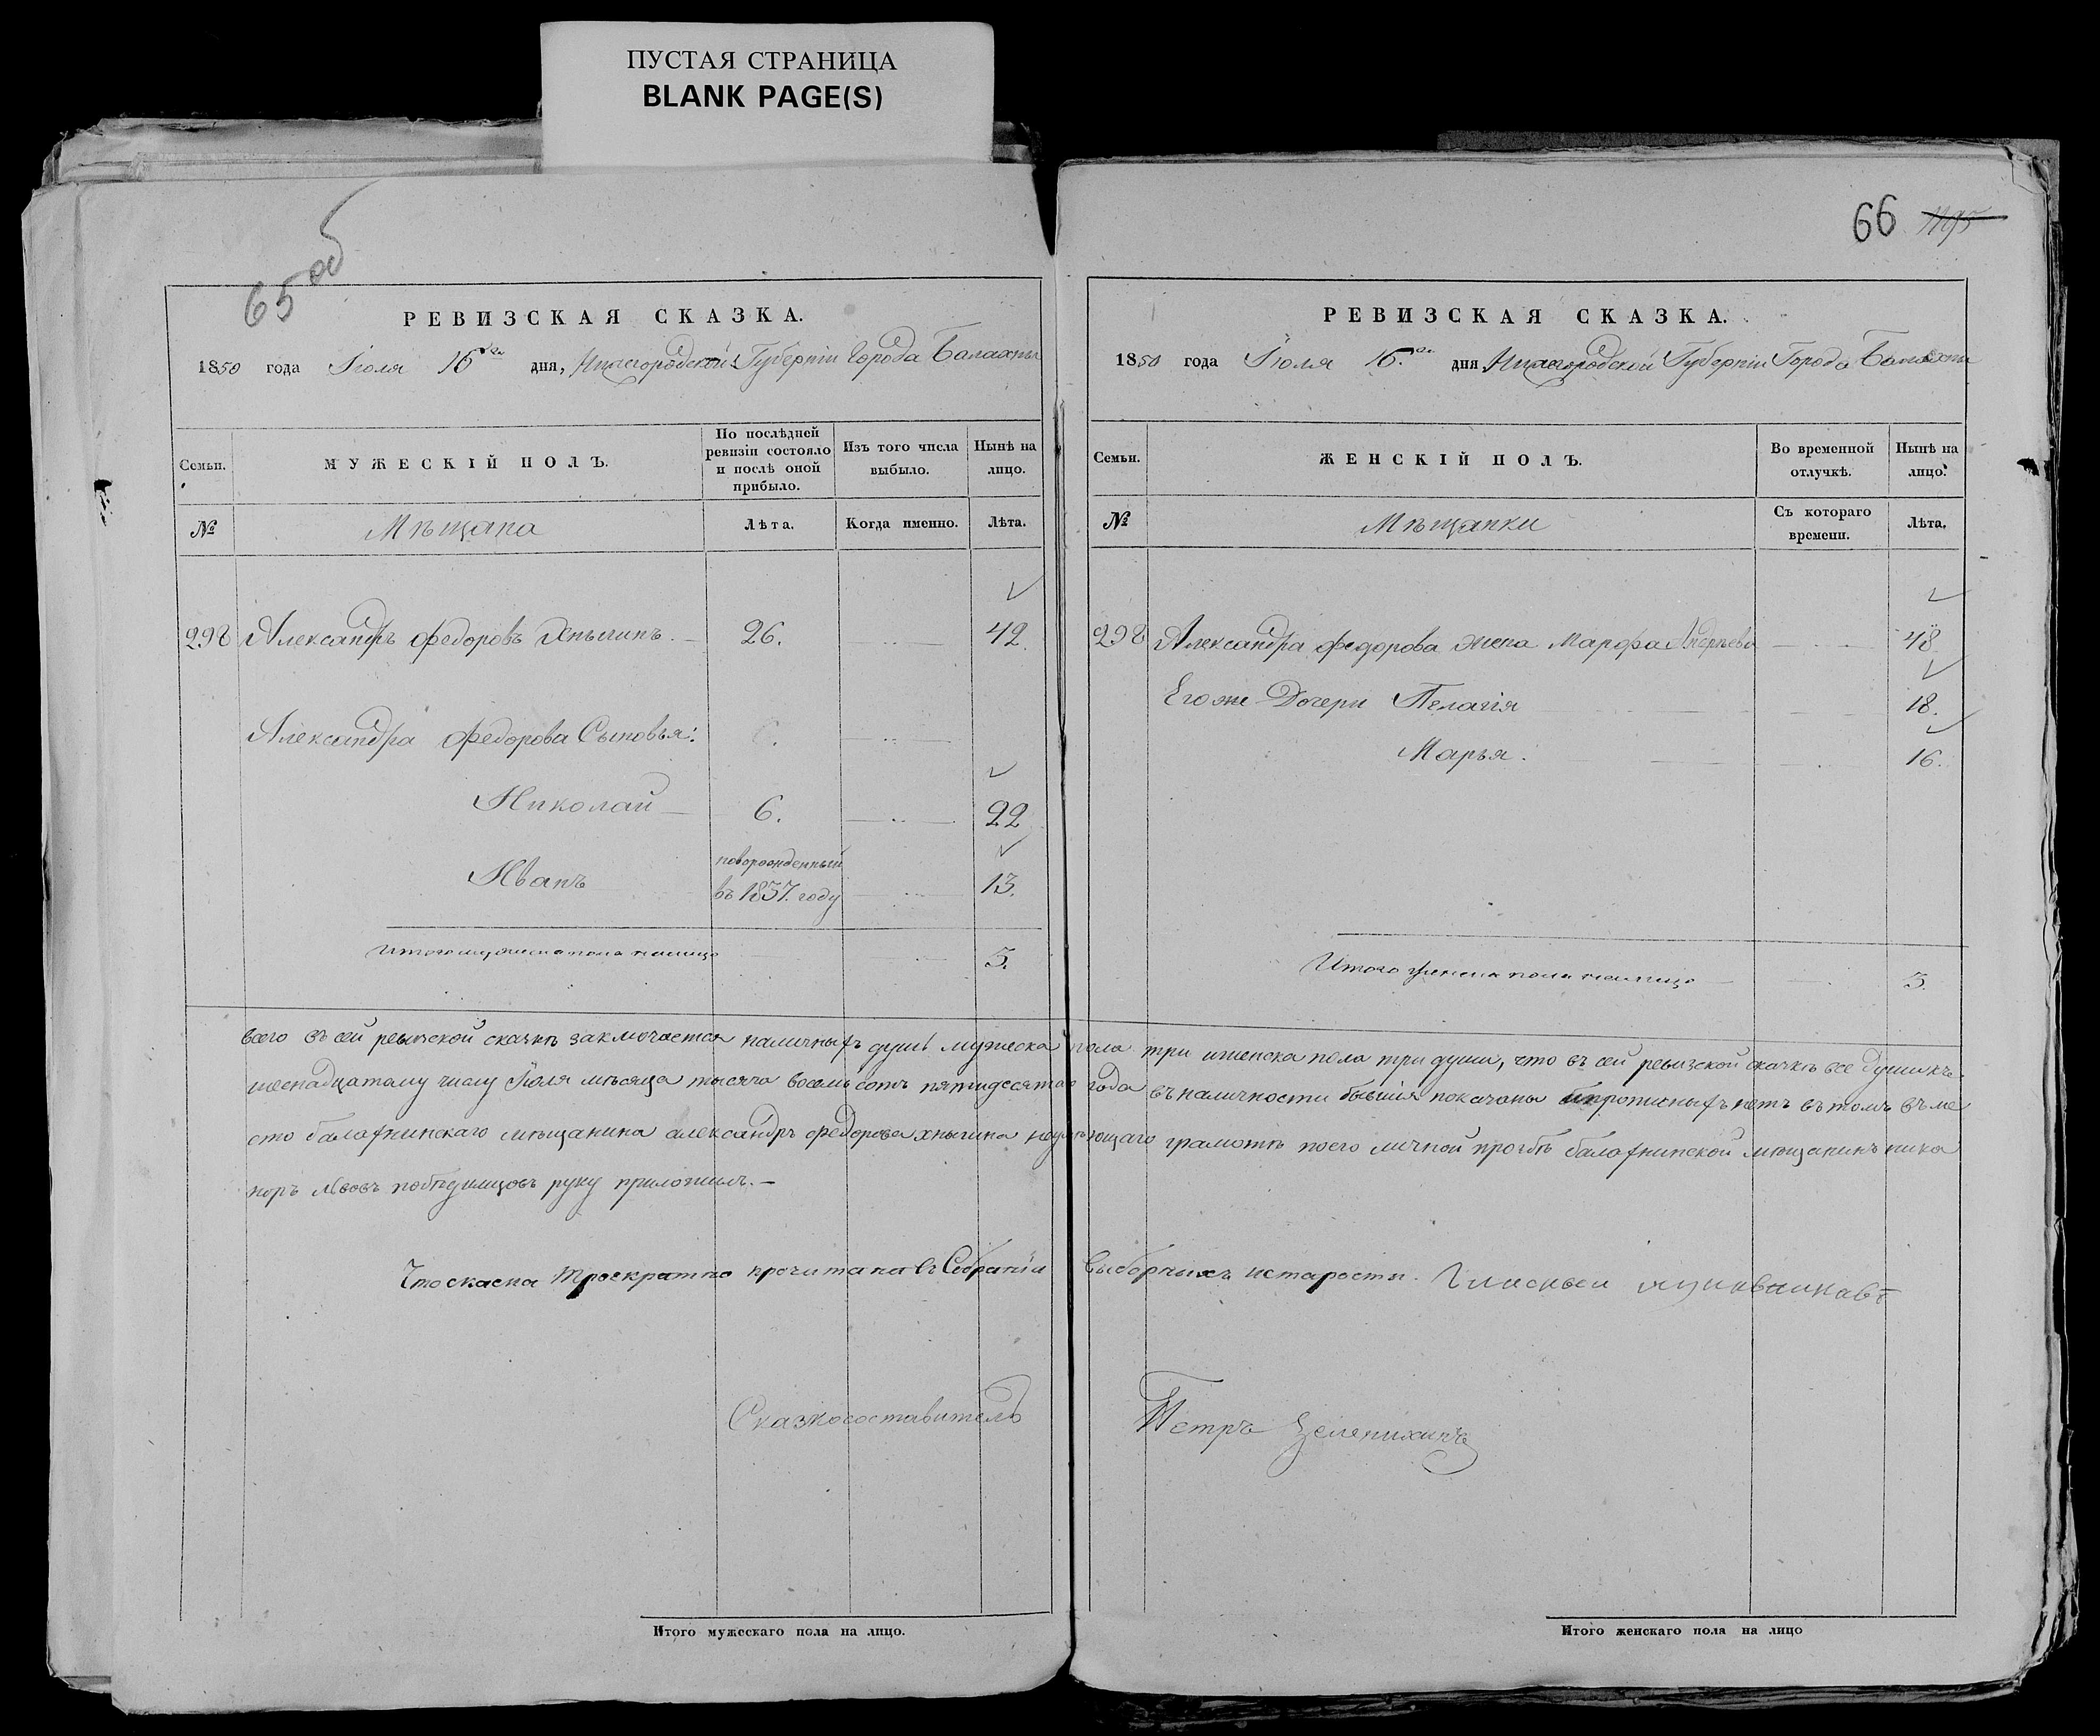 ПУСТАЯ СТРАНИЦА
BLANK PAGE(S)
65 об
РЕВИЗСКАЯ СКАЗКА.
1850 года Іюля 16го дня, Нижегородской Губерніи Города Балахны
Семьи.
МУЖЕСКІЙ ПОЛЪ.
По послѣдней ревизіи состояло и послѣ оной прибыло.
Изъ того числа выбыло.
Нынѣ на лицо.
№ Мѣщана Лѣта. Когда именно. Лѣта.
298 Александръ Федоровъ Хныгинъ. 26. 42.
Александра Федорова Сыновья:
Николай 6. 22
новорожденный
Иванъ въ 1837. году 13.
Итого мужеска пола налицо 3.
66
РЕВИЗСКАЯ СКАЗКА.
1850 года Іюля 16.го дня Нижегородской Губерніи Города Балахны
Семьи.
ЖЕНСКІЙ ПОЛЪ.
Во временной отлучкѣ.
Нынѣ на лицо.
№ Мѣщанки Съ котораго времени. Лѣта.
298 Александра Федорова жена Марфа Андреева 48
Его же Дочери Пелагія 18.
Марья. 16.
Итого женска пола налицо 3.
всего въ сей ревизской сказкѣ заключается наличныхъ душъ мужеска пола три иженска пола три души, что въ сей ревизской скаскѣ все души къ
шеснадцатому числу Іюля мѣсяца тысяча восемь сотъ пятидесятаго года въ наличности бывшія показаны ипрописныхъ нетъ въ томъ въ ме
сто балахнинскаго мѣщанина александръ федорова хныгина неумѣющаго грамотѣ поего личной прозбѣ балахнинской мѣщанинъ ника
норъ Львовъ руку приложилъ.—
Что скаска троекратно прочитана въ Собраніи выборныхъ истарости.
Сказкосоставитель Петръ Зеленихинъ
Итого мужескаго пола на лицо.
Итого женскаго пола на лицо